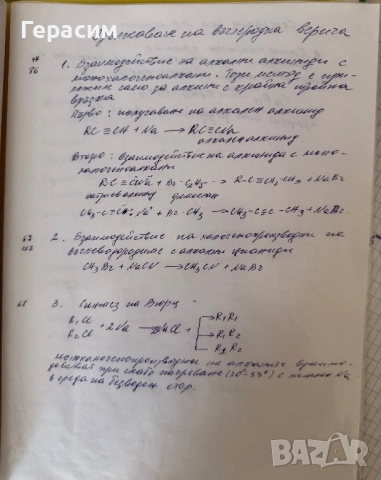 Герасим
Удължаване на въглеродна верига
1. Взаимодействие на алкални алкиниди с
86
монохалогеноалкани. Този метод е при-
ложим само за алкини с крайна тройна
връзка
Първо: получаване на алкален алкинид
RC≡CH + Na → RC≡CNa
алкален алкинид
Второ: взаимодействие на алкинида с моно-
халогеноалкани
R-C≡CNa + Br-C₂H₅ → R-C≡CH₂-CH₃ + NaBr
натриев алкинид
+ Br-CH₃ → CH₃-C≡C-CH₃ + NaBr
67
2. Взаимодействие на халогенопроизводни на
въглеводородите с алкални цианиди
CH₃Br + NaCN → CH₃CN + NaBr
68
3. Синтез на Вюрц
R₁Cl
R₂Cl + 2Na → NaCl +
R₁R₁
R₁R₂
R₂R₂
монохалогенопроизводни на алканите взаимо-
действат при слабо нагряване с метален Na
в среда на безводен етер.
BAZAR
.bg